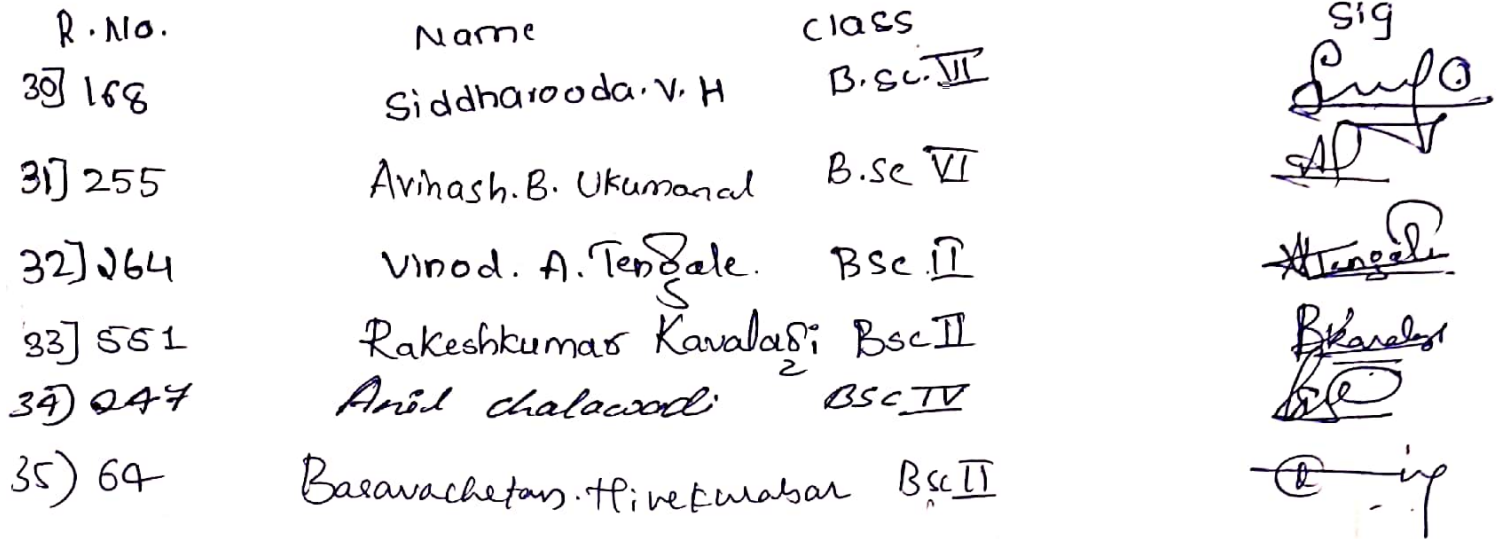 R.No. Name Class Sig
30] 168 Siddharooda.V.H B.Sc.VI
31] 255 Avinash.B. Ukumanal B.Sc VI
32] 264 Vinod. A. Tengale. BSc II ATengale
33] 551 Rakeshkumar Kavalagi Bsc II RKavalagi
34) 247 Anil chalawadi BSC IV
35) 64 Basavachetan. Hirekurabar Bsc II